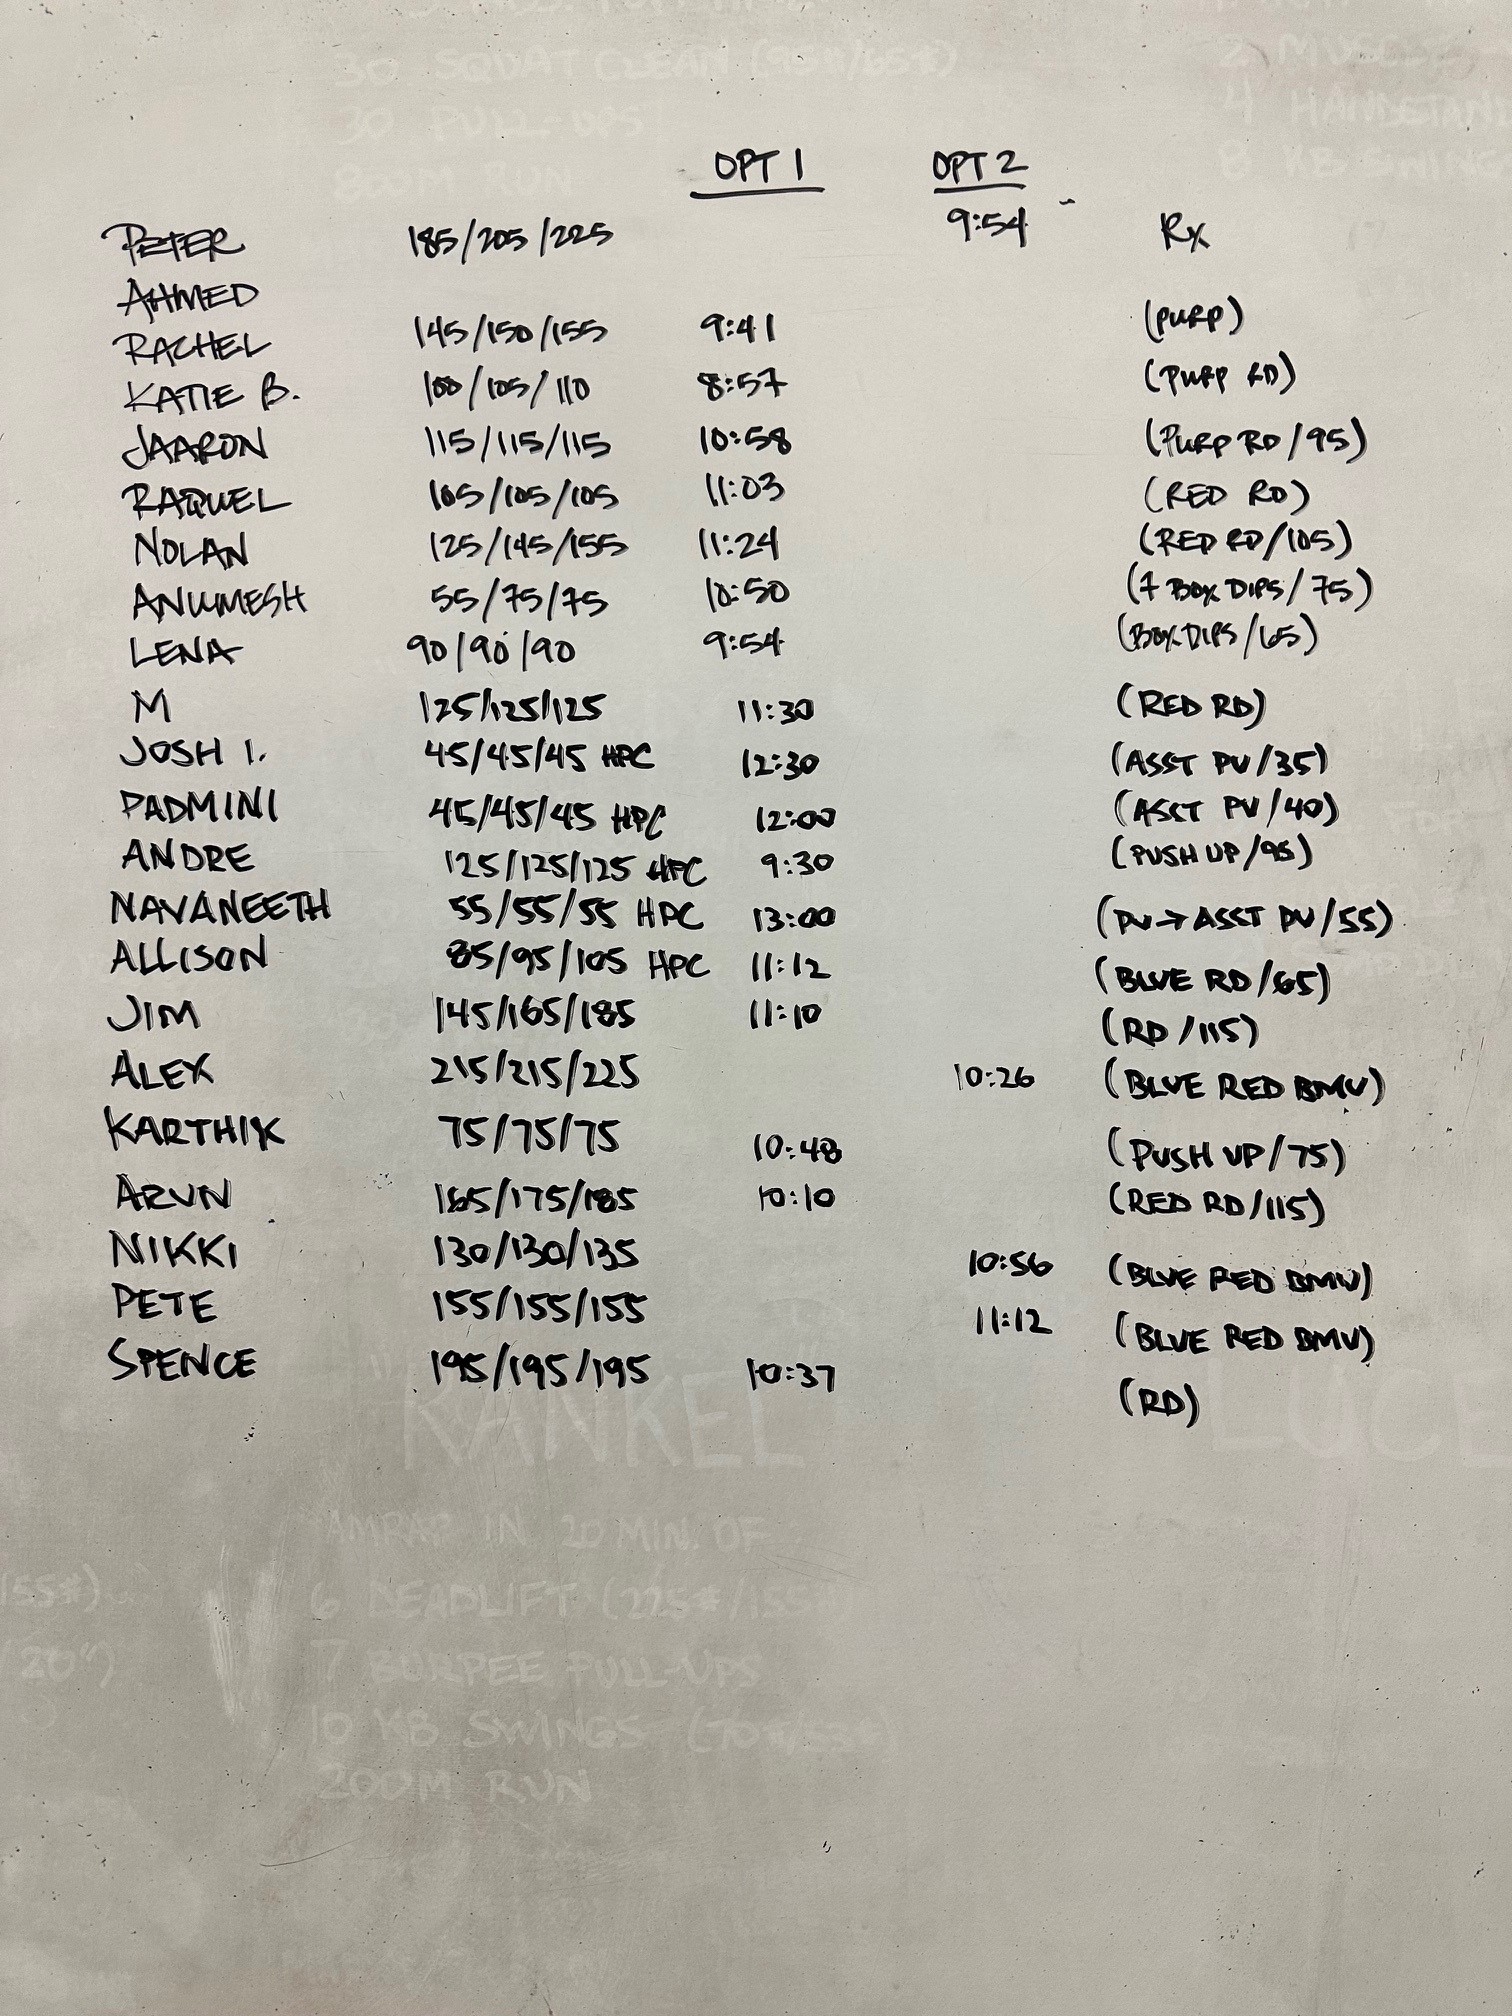 30 SQUAT CLEAN (95#/65#)
30 PULL-UPS
800M RUN
2 MUSCLE
4 HANDSTAND
8 KB SWING
OPT 1 OPT 2
PETER 185/205/225 9:54 Rx
AHMED
RACHEL 145/150/155 9:41 (PURP)
KATIE B. 100/105/110 8:57 (PURP RD)
JAARON 115/115/115 10:58 (PURP RD/95)
RAQUEL 105/105/105 11:03 (RED RD)
NOLAN 125/145/155 11:24 (RED RD/105)
ANUMESH 55/75/75 10:50 (7 BOX DIPS/75)
LENA 90/90/90 9:54 (BOX DIPS/65)
M 125/125/125 11:30 (RED RD)
JOSH I. 45/45/45 HPC 12:30 (ASST PU/35)
PADMINI 45/45/45 HPC 12:00 (ASST PU/40)
ANDRE 125/125/125 HPC 9:30 (PUSH UP/95)
NAVANEETH 55/55/55 HPC 13:00 (PU→ASST PU/55)
ALLISON 85/95/105 HPC 11:12 (BLUE RD/65)
JIM 145/165/185 11:10 (RD/115)
ALEX 215/215/225 10:26 (BLUE RED BMU)
KARTHIK 75/75/75 10:48 (PUSH UP/75)
ARUN 165/175/185 10:10 (RED RD/115)
NIKKI 130/130/135 10:56 (BLUE RED BMU)
PETE 155/155/155 11:12 (BLUE RED BMU)
SPENCE 195/195/195 10:37 (RD)
"RANKEL LUCE
AMRAP IN 20 MIN. OF
155#)
6 DEADLIFT (225#/155#)
20")
7 BURPEE PULL-UPS
10 KB SWINGS (70#/55#)
200M RUN